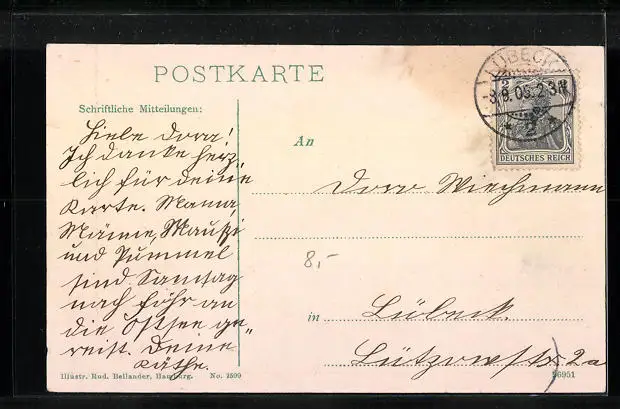 POSTKARTE
Schriftliche Mitteilungen:
Liebe Dora!
Ich danke herz-
lich für Deine
Karte. Mama,
Männe, Mauszi
und Pummel
sind Samstag
nach Föhr an
die Ostsee ge-
reist. Deine
Käthe.
An
Dora Wiechmann
8,-
in Lübeck.
Lützowstr. 2a
LÜBECK
-3.8.05.2-3N
* 2
DEUTSCHES REICH
Illustr. Rud. Bellander, Hamburg. No. 1599
96951